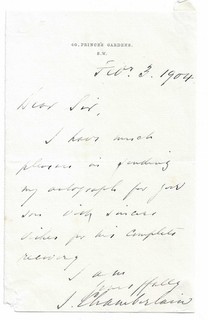 PRINCE'S GARDENS.
S.W.
Feb. 3. 1904
Dear Sir,
I have much
pleasure in sending
my autograph for your
son with sincere
wishes for his complete
recovery
I am
Yours truly
J. Chamberlain